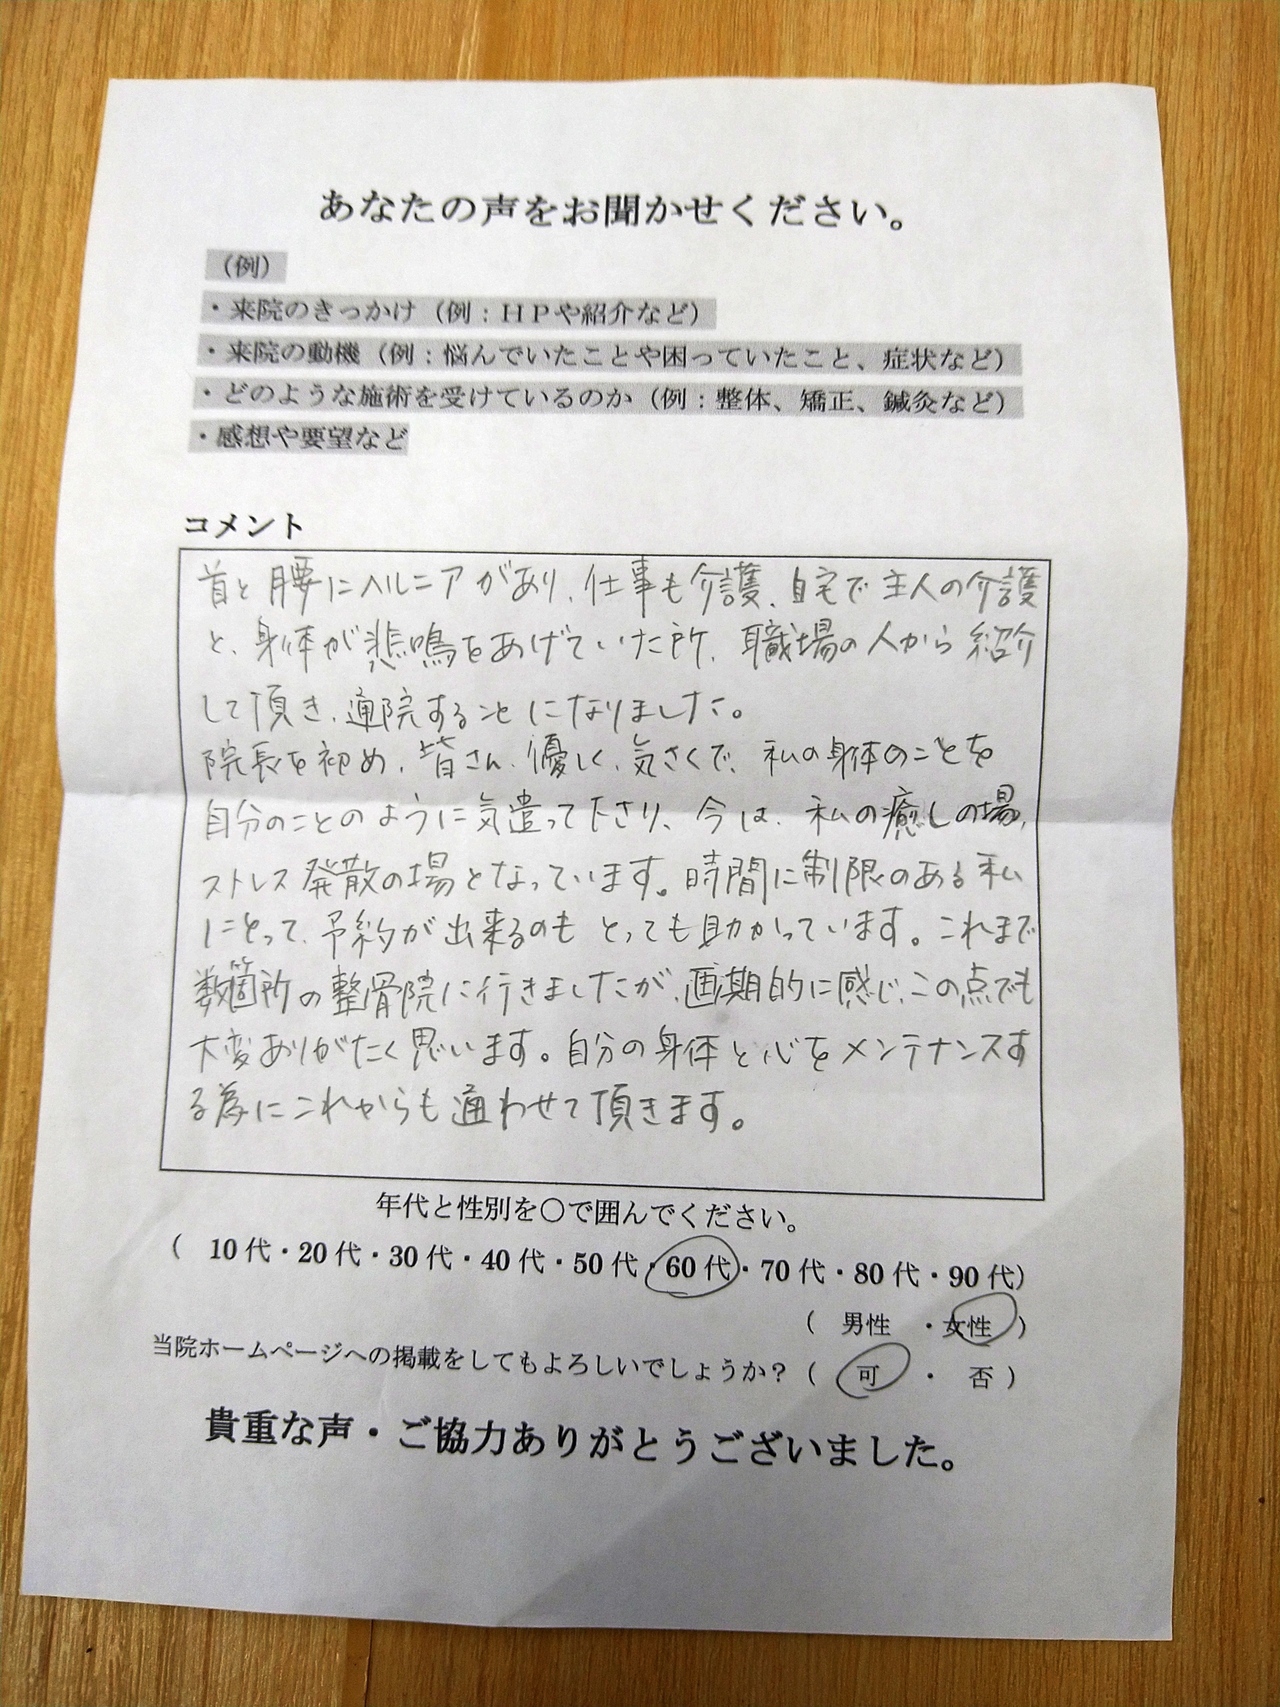 あなたの声をお聞かせください。
（例）
・来院のきっかけ（例：ＨＰや紹介など）
・来院の動機（例：悩んでいたことや困っていたこと、症状など）
・どのような施術を受けているのか（例：整体、矯正、鍼灸など）
・感想や要望など
コメント
首と腰にヘルニアがあり、仕事も介護、自宅で主人の介護
と、身体が悲鳴をあげていた所、職場の人から紹介
して頂き、通院することになりました。
院長を初め、皆さん、優しく、気さくで、私の身体のことを
自分のことのように気遣って下さり、今は、私の癒しの場、
ストレス発散の場となっています。時間に制限のある私
にとって、予約が出来るのもとっても助かっています。これまで
数箇所の整骨院に行きましたが、画期的に感じ、この点でも
大変ありがたく思います。自分の身体と心をメンテナンスす
る為にこれからも通わせて頂きます。
年代と性別を○で囲んでください。
（ 10代・20代・30代・40代・50代・60代・70代・80代・90代）
（ 男性 ・女性 ）
当院ホームページへの掲載をしてもよろしいでしょうか？（ 可 ・ 否 ）
貴重な声・ご協力ありがとうございました。